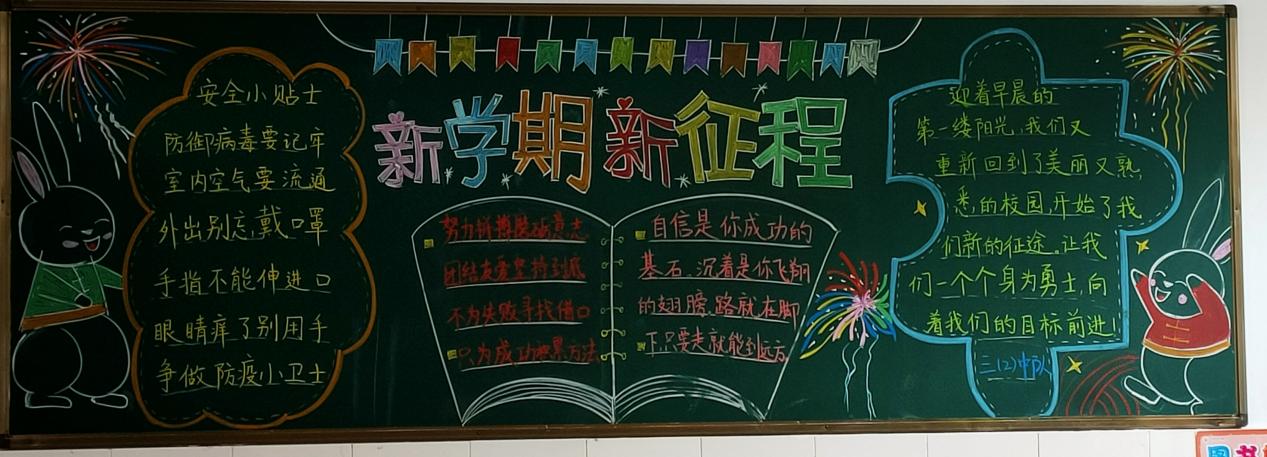 新学期新征程
安全小贴士
防御病毒要记牢
室内空气要流通
外出别忘戴口罩
手指不能伸进口
眼睛痒了别用手
争做防疫小卫士
努力拼搏展硕意志
团结友爱坚持到底
不为失败寻找借口
只为成功 方法
自信是你成功的
基石，沉着是你飞翔
的翅膀，路就在脚
下，只要走就能到远方。
迎着早晨的
第一缕阳光，我们又
重新回到了美丽又熟
悉的校园，开始了我
们新的征途，让我
们一个个身为勇士，向
着我们的目标前进！
三(2)中队
图书